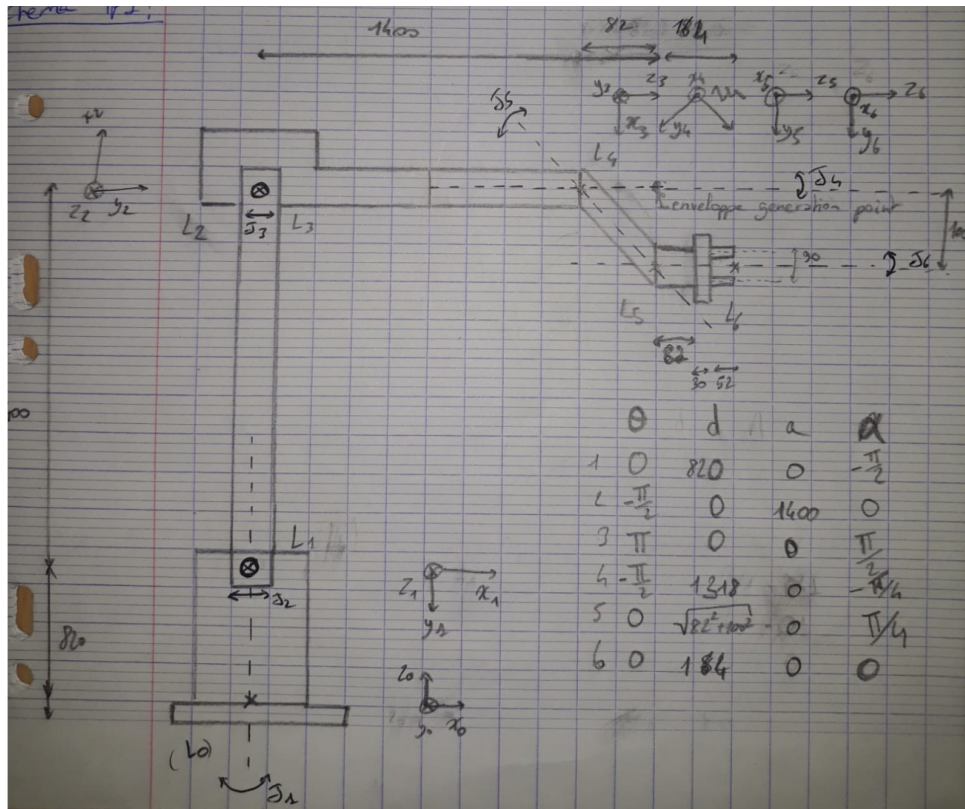 1400
82
184
y3 z3 x4 x5 z5 z6
x3 y4 y5 x6 y6
J5
+z
z2 y2
L4
J4
enveloppe generation point
L2 J3 L3
J6
90
L5 L6
82
30 52
θ d a α
1 0 820 0 -π/2
2 -π/2 0 1400 0
3 π 0 0 π/2
4 -π/2 1318 0 -π/4
5 0 √82²+100² 0 π/4
6 0 184 0 0
L1
z1 x1
y1
J2
820
z0
y0 x0
(L0)
J1